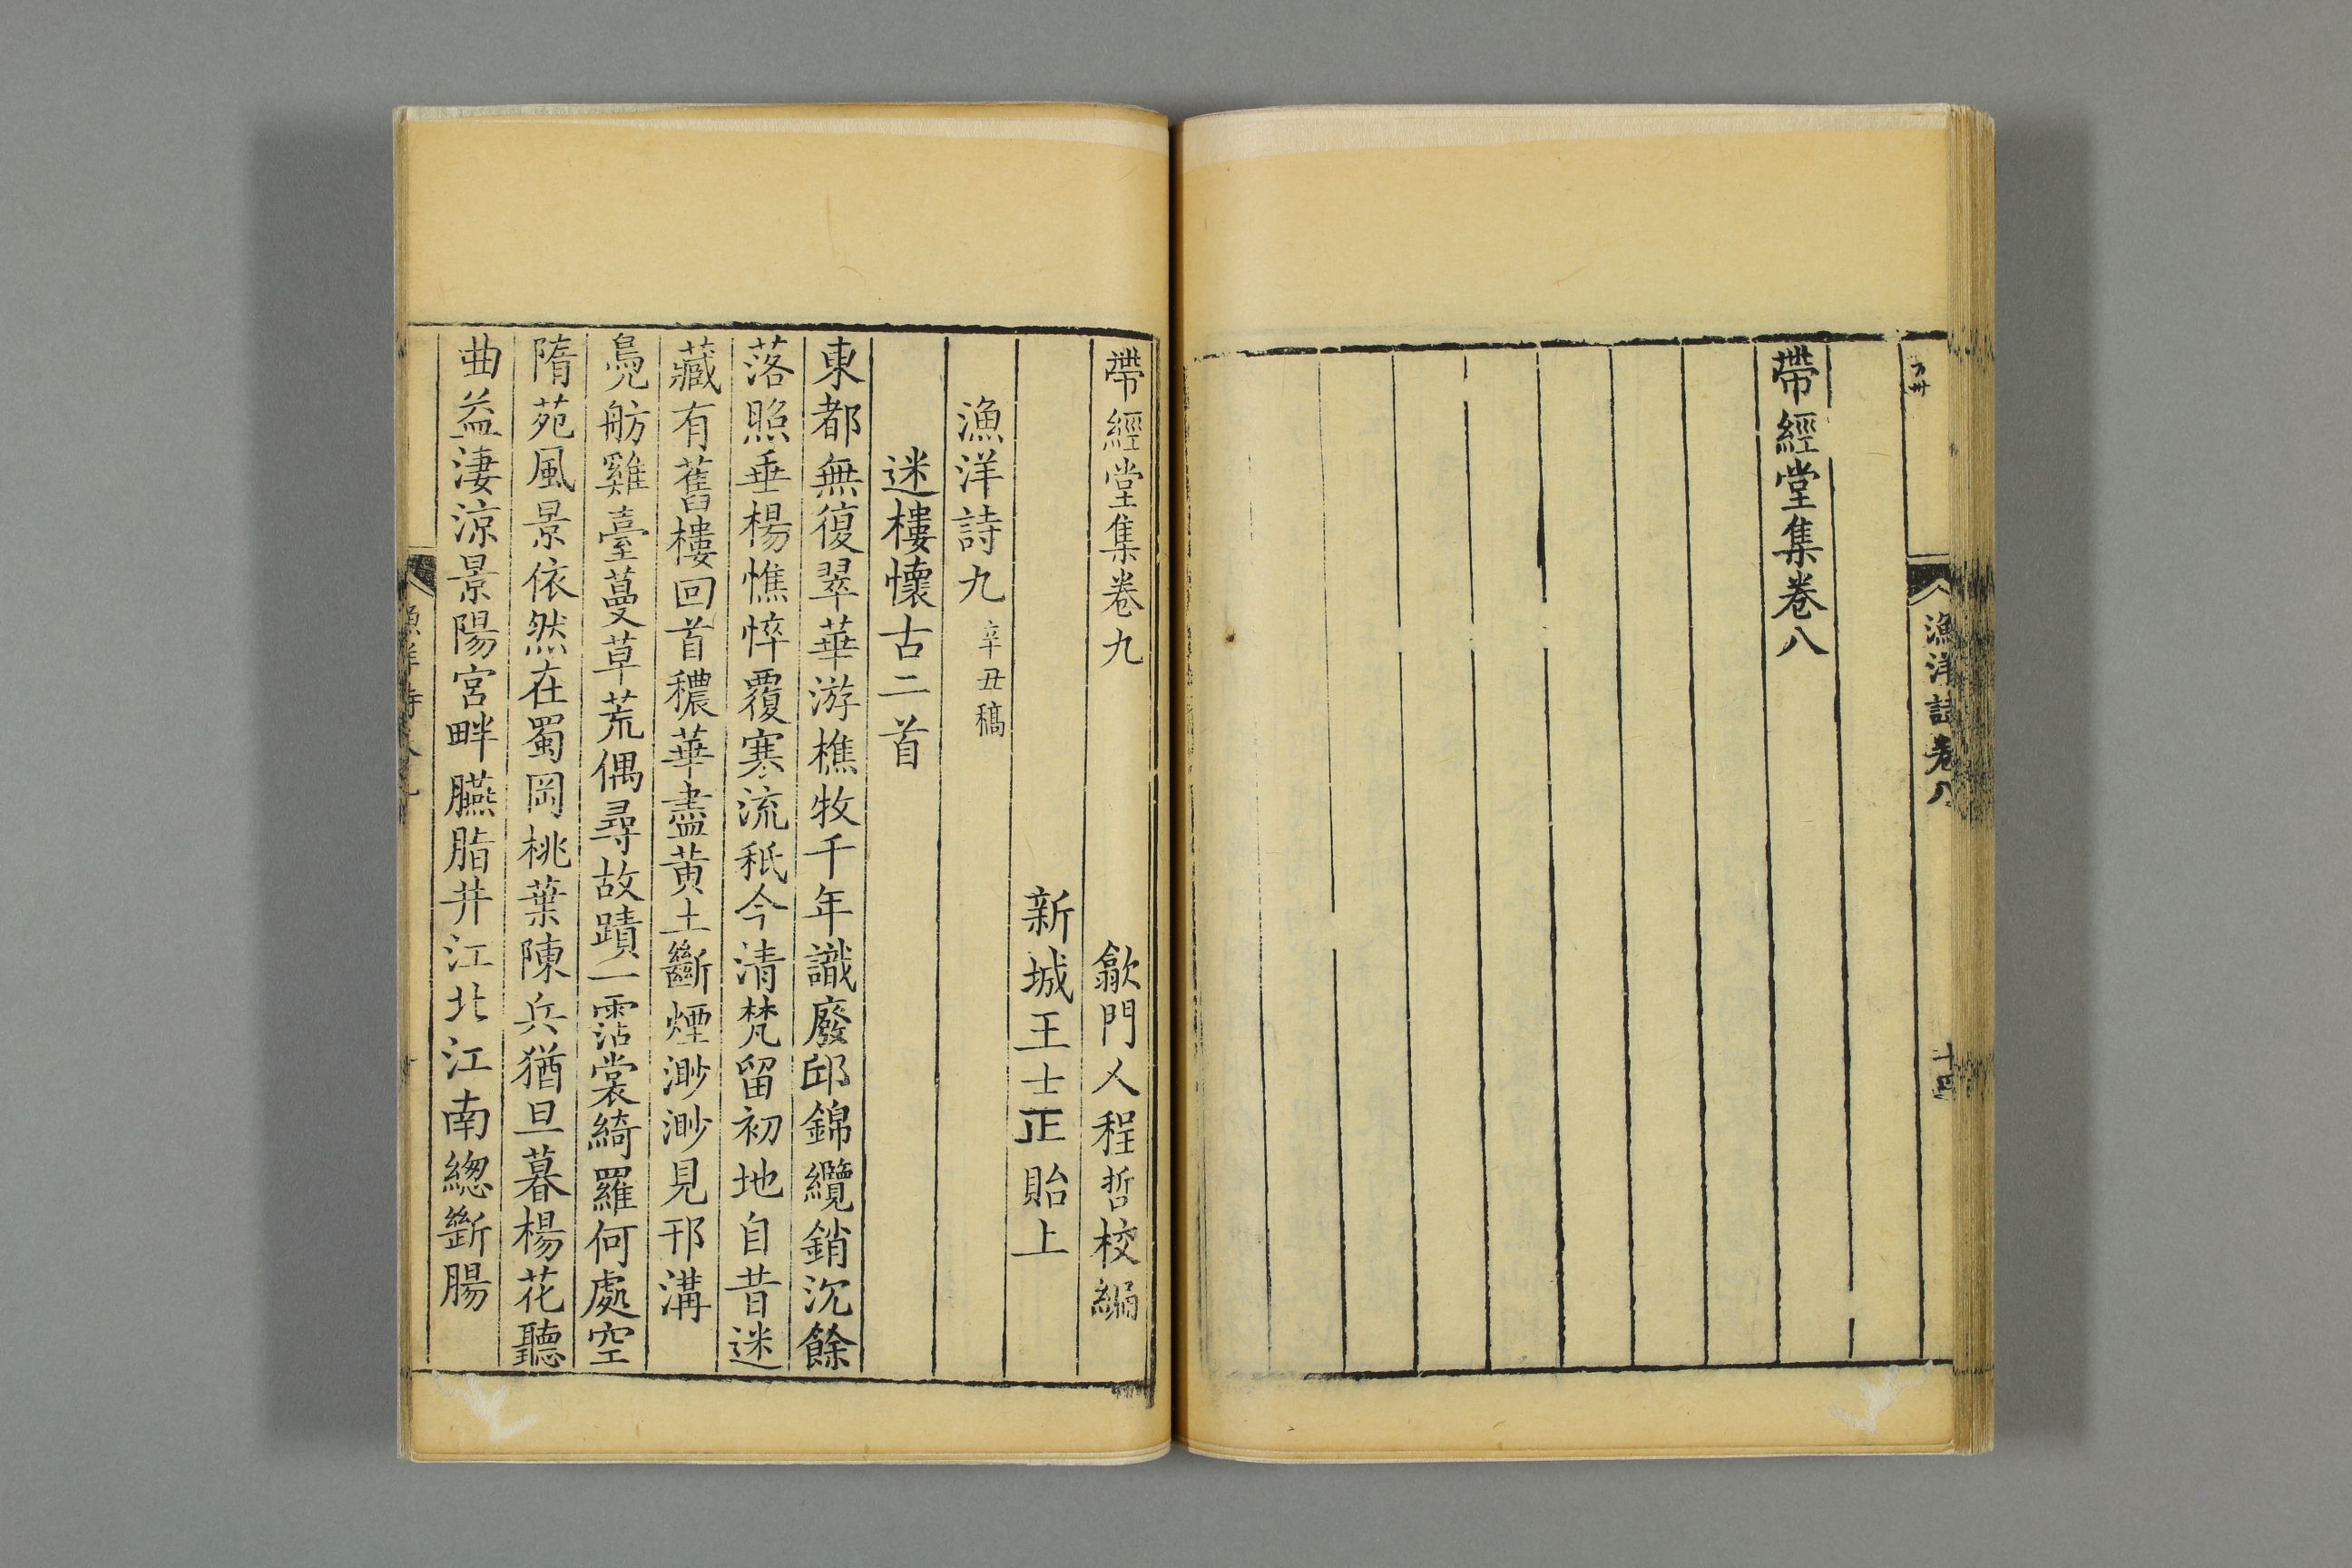 漁洋詩卷八
十四
帶經堂集卷八
帶經堂集卷九
歙門人程哲校編
新城王士正貽上
漁洋詩九 辛丑稿
迷樓懷古二首
東都無復翠華游樵牧千年識廢邱錦纜銷沉餘
落照垂楊憔悴覆寒流秖今清梵留初地自昔迷
藏有舊樓回首穠華盡黃土斷煙渺渺見邗溝
鳧舫雞臺蔓草荒偶尋故蹟一霑裳綺羅何處空
隋苑風景依然在蜀岡桃葉陳兵猶旦暮楊花聽
曲益淒涼景陽宮畔臙脂井江北江南緫斷腸